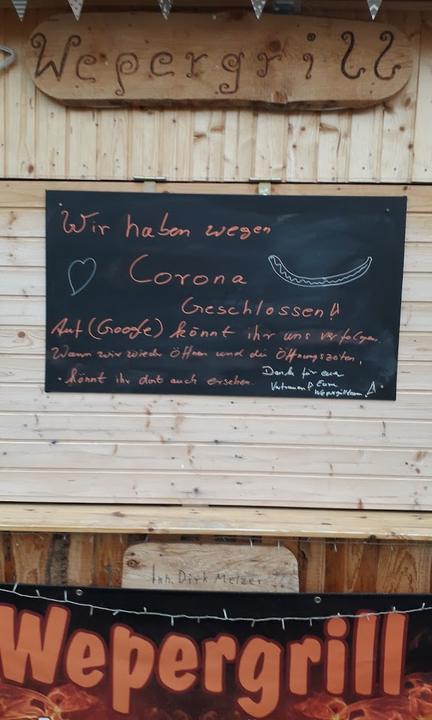 Wepergrill
Wir haben wegen
Corona
Geschlossen!
Auf (Google) könnt ihr uns verfolgen.
Wann wir wieder Öffnen und die Öffnungszeiten,
könnt ihr dort auch ersehen.
Dank für euer
Vertrauen! Euer
Wepergrillteam!
Inh. Dirk Melzer
Wepergrill